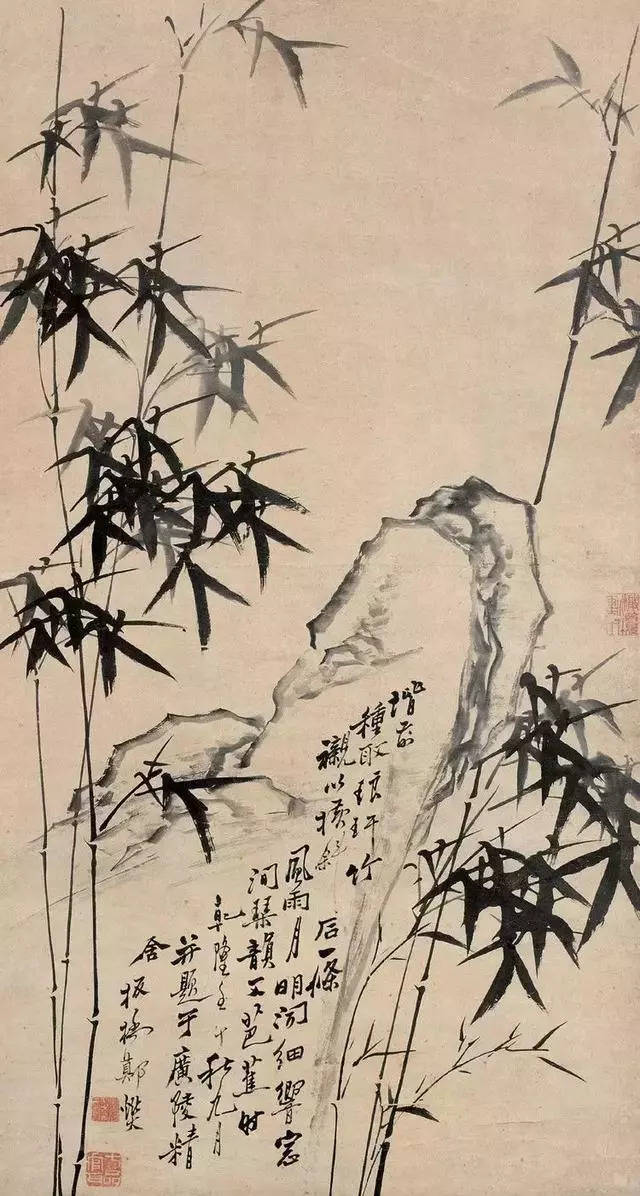 階前
種取琅玕竹
襯以橫斜
石一條
風雨月明聞細響窓
間琴韻芭蕉时
乾隆壬午秋九月
并題于廣陵精
舍板橋鄭燮